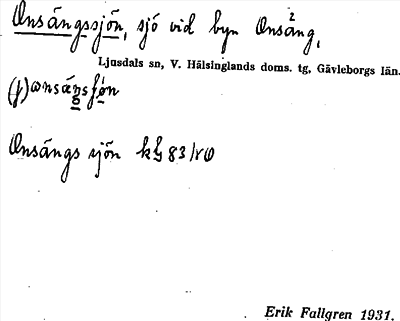 Onsängssjön, sjö vid byn Onsäng,
Ljusdals sn, V. Hälsinglands doms. tg, Gävleborgs län.
Onsängs sjön
Erik Fallgren 1931.